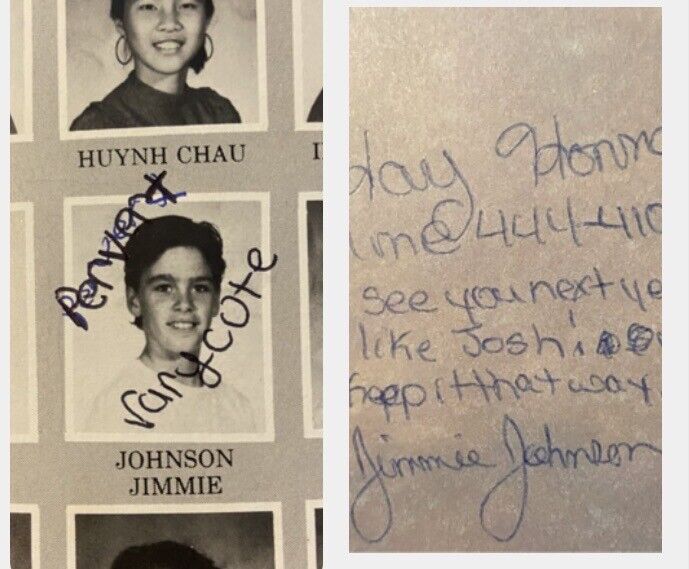 HUYNH CHAU
Penvert
vary cute
JOHNSON
JIMMIE
stay
me@ 444-410
see you next ye
like Josh!
keep it that way
Jimmie Johnson